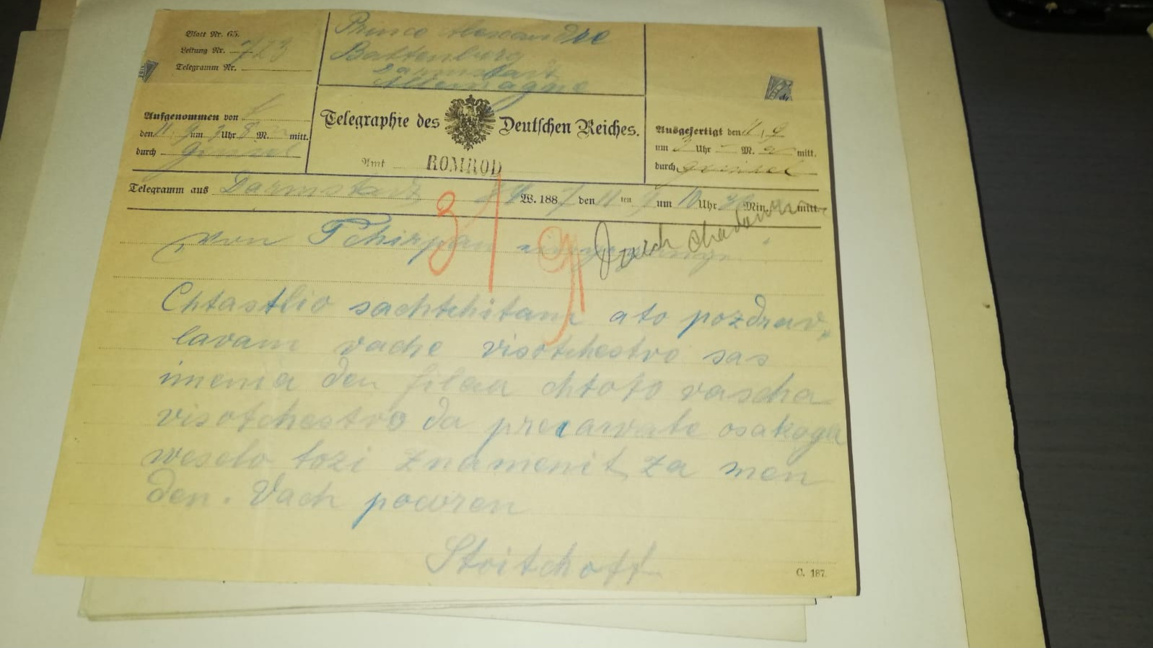 Blatt Nr. 65.
Leitung Nr. 723
Telegramm Nr.
Prince Alexandre
Battenburg
Darmstadt
Allemagne
Aufgenommen von
den 11. 9 um Uhr 8 M. mitt.
durch
Telegraphie des Deutschen Reiches.
Amt ROMROD
Ausgefertigt den 11. 9
um Uhr M. mitt.
durch
Telegramm aus Darmstadt W. 1887 den 11 ten 9 um 10 Uhr Min. mitt.
von Tchirpan
9/9
Chtastlio sachtchitam ato pozdrav,
lavam vache visotchestvo sas
imenia den jilaa chtoto vascha
visotchestvo da precarvate osakoga
weselo tozi znamenit za men
den. Vach poweren
Stoitchoff
C. 187.